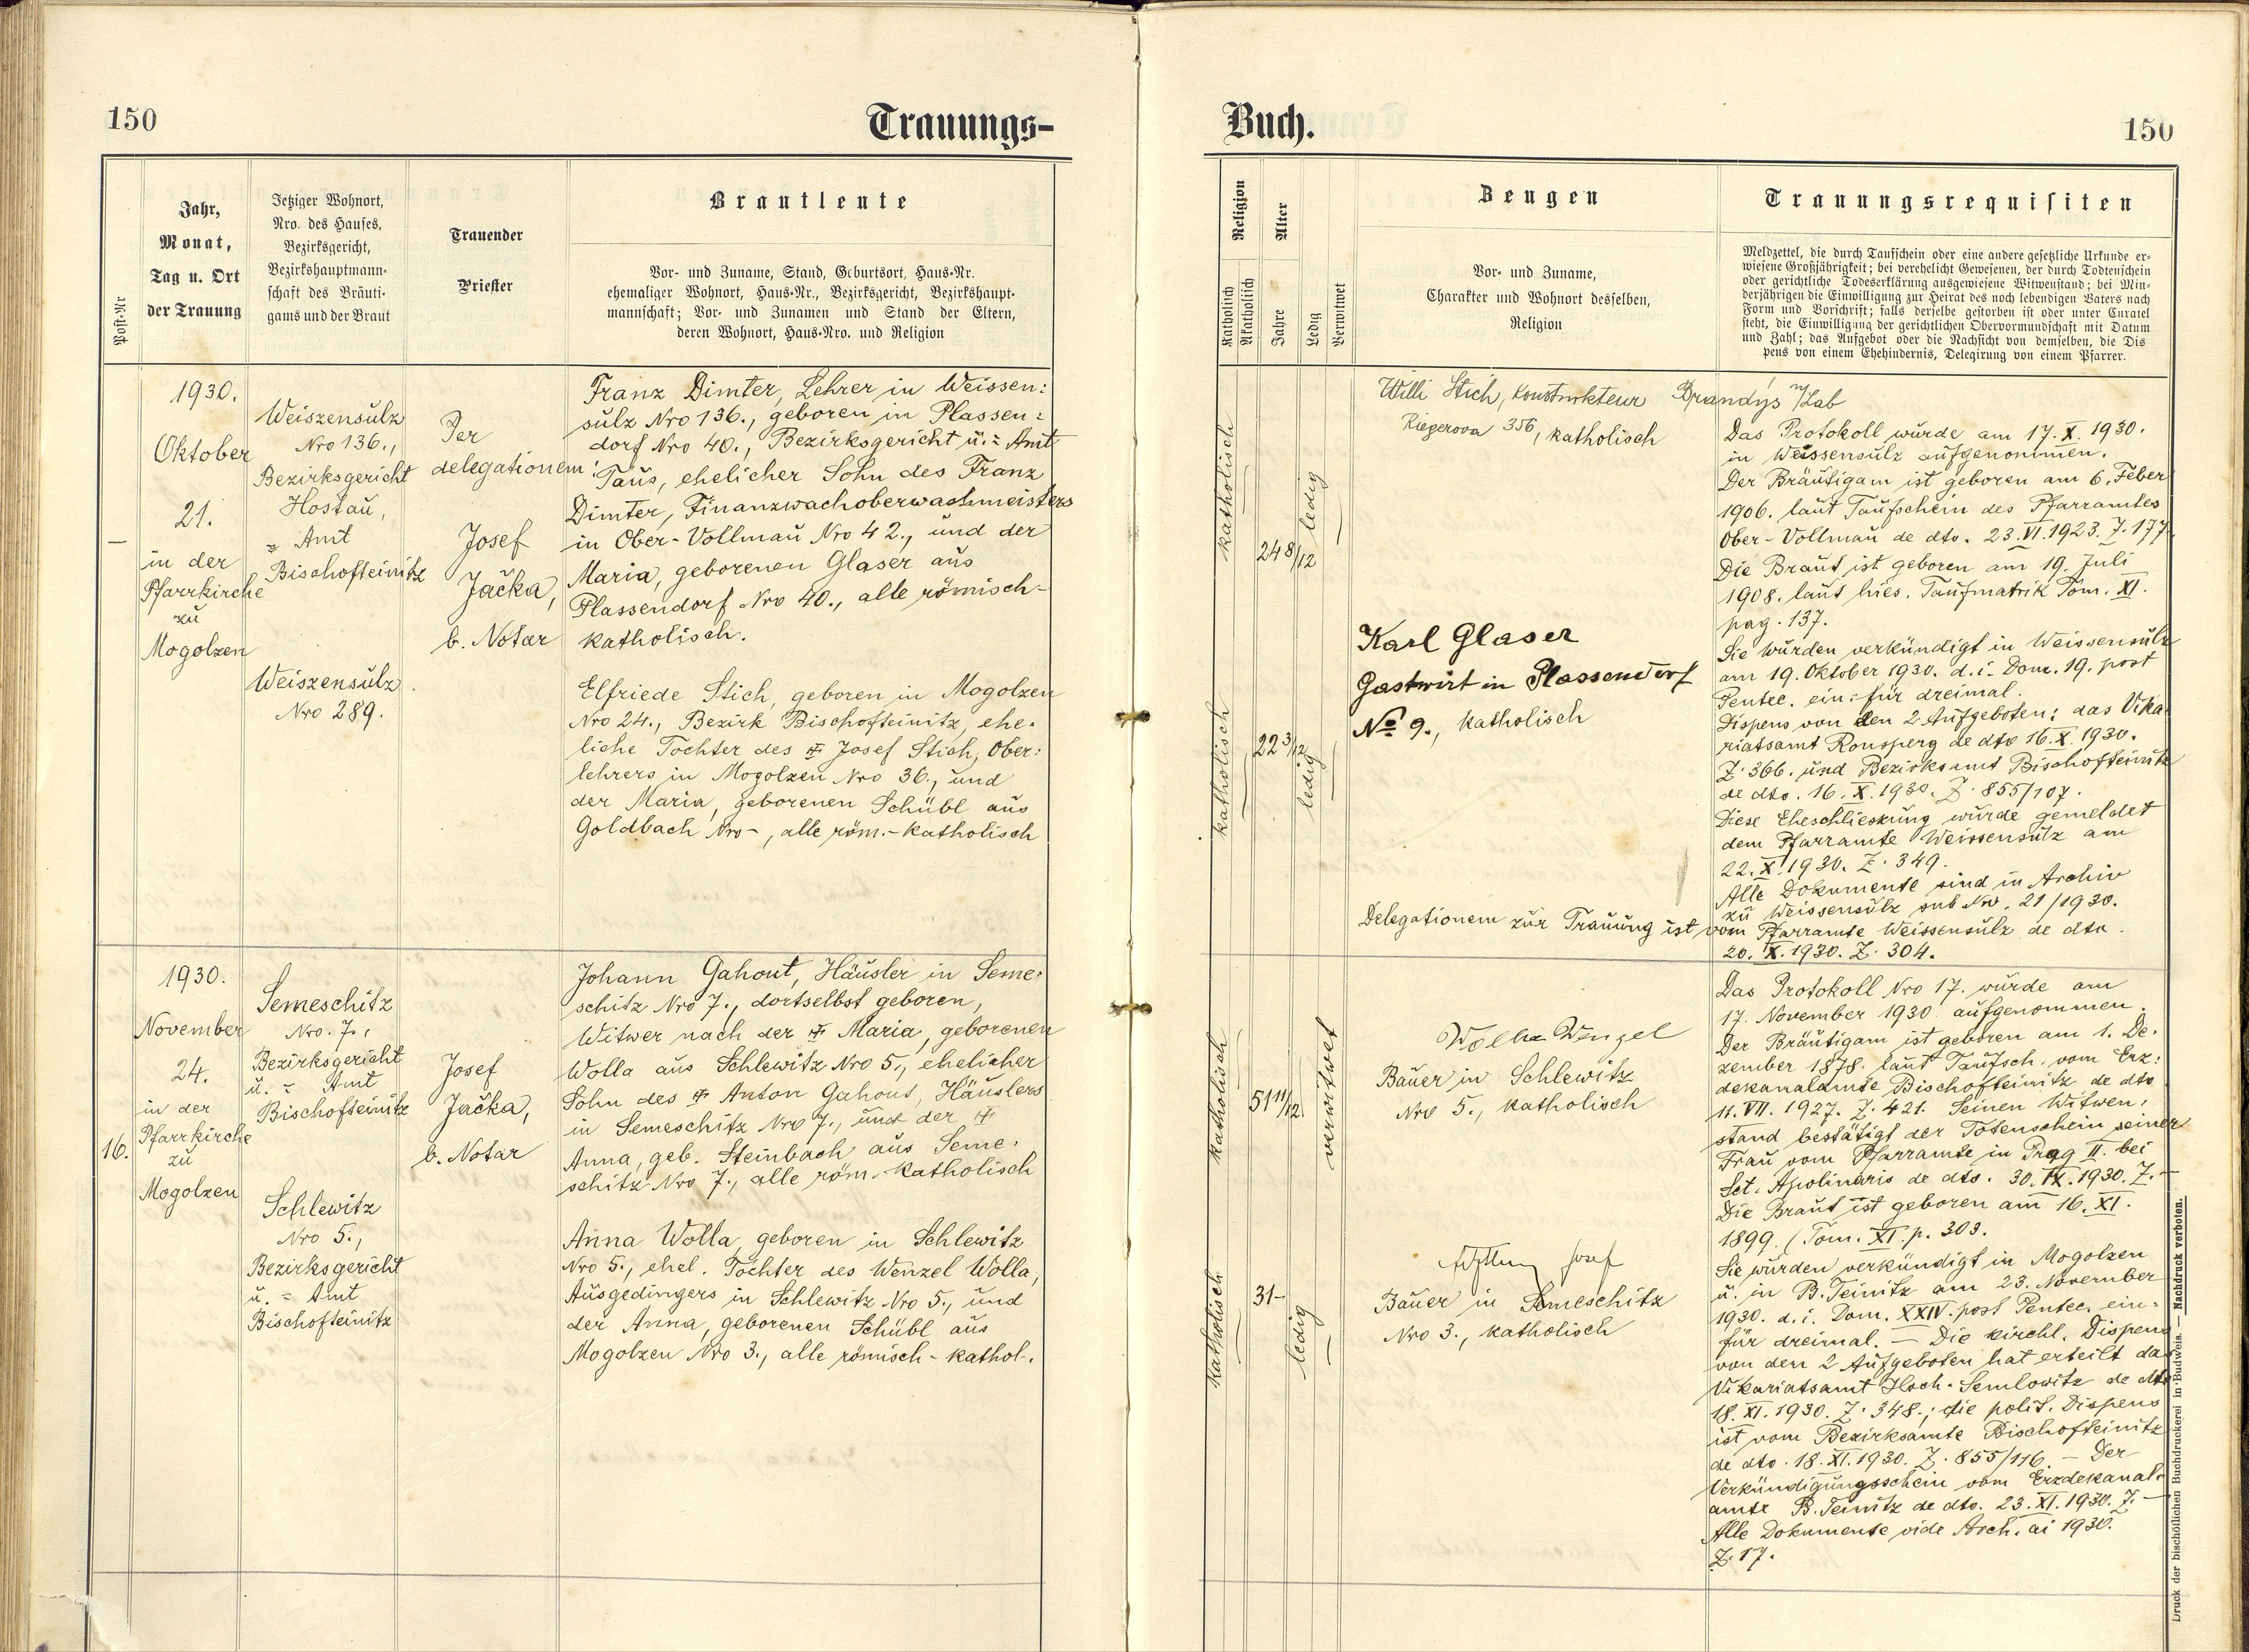 150
Trauungs-
Post-Nr
Jahr,
Monat,
Tag u. Ort
der Trauung
Jetziger Wohnort,
Nro. des Hauses,
Bezirksgericht,
Bezirkshauptmann-
schaft des Bräuti-
gams und der Braut
Trauender
Priester
Brautleute
Vor- und Zuname, Stand, Geburtsort, Haus-Nr.
ehemaliger Wohnort, Haus-Nr., Bezirksgericht, Bezirkshaupt-
mannschaft; Vor- und Zunamen und Stand der Eltern,
deren Wohnort, Haus-Nro. und Religion
—
1930.
Oktober
21.
in der
Pfarrkirche
zu
Mogolzen
Weiszensulz
Nro 136.,
Bezirksgericht
Hostau,
= Amt
Bischofteinitz
Weiszensulz
Nro 289.
Per
delegationem:
Josef
Jačka,
b. Notar
Franz Dimter, Lehrer in Weissen:
sulz Nro 136., geboren in Plassen:
dorf Nro 40., Bezirksgericht u. = Amt
Taus, ehelicher Sohn des Franz
Dimter, Finanzwachoberwachmeisters
in Ober-Vollmau Nro 42., und der
Maria, geborenen Glaser aus
Plassendorf Nro 40., alle römisch-
katholisch.
Elfriede Stich, geboren in Mogolzen
Nro 24., Bezirk Bischofteinitz, ehe-
liche Tochter des ✝ Josef Stich, Ober:
lehrers in Mogolzen Nro 36., und
der Maria, geborenen Schübl aus
Goldbach Nro -, alle röm.-katholisch
16.
1930.
November
24.
in der
Pfarrkirche
zu
Mogolzen
Semeschitz
Nro. 7.,
Bezirksgericht
u. = Amt
Bischofteinitz
Schlewitz
Nro 5.,
Bezirksgericht
u. = Amt
Bischofteinitz
Josef
Jačka,
b. Notar
Johann Gahout, Häusler in Seme:
schitz Nro 7., dortselbst geboren,
Witwer nach der ✝ Maria, geborenen
Wolla aus Schlewitz Nro 5., ehelicher
Sohn des ✝ Anton Gahout, Häuslers
in Semeschitz Nro 7., und der ✝
Anna, geb. Steinbach aus Seme:
schitz Nro 7., alle röm.-katholisch
Anna Wolla, geboren in Schlewitz
Nro 5., ehel. Tochter des Wenzel Wolla,
Ausgedingers in Schlewitz Nro 5., und
der Anna, geborenen Schübl aus
Mogolzen Nro 3., alle römisch-kathol.
Buch.
150
Religion
Katholisch
Akatholisch
Alter
Jahre
Ledig
Verwitwet
Zeugen
Vor- und Zuname,
Charakter und Wohnort desselben,
Religion
Trauungsrequisiten
Meldzettel, die durch Taufschein oder eine andere gesetzliche Urkunde er-
wiesene Großjährigkeit; bei verehelicht Gewesenen, der durch Todtenschein
oder gerichtliche Todeserklärung ausgewiesene Witwenstand; bei Min-
derjährigen die Einwilligung zur Heirat des noch lebendigen Vaters nach
Form und Vorschrift; falls derselbe gestorben ist oder unter Curatel
steht, die Einwilligung der gerichtlichen Obervormundschaft mit Datum
und Zahl; das Aufgebot oder die Nachsicht von demselben, die Dis
pens von einem Ehehindernis, Delegirung von einem Pfarrer.
katholisch
24 8/12
ledig
katholisch
22 3/12
ledig
Willi Stich, Konstrukteur Brandýs n/Lab
Riegerova 356, katholisch
Karl Glaser
Gastwirt in Plassendorf
No 9., katholisch
Das Protokoll wurde am 17. X. 1930.
in Weissensulz aufgenommen.
Der Bräutigam ist geboren am 6. Feber
1906. laut Taufschein des Pfarramtes
Ober-Vollmau de dto. 23. VI. 1923. Z. 177.
Die Braut ist geboren am 19. Juli
1908. laut hies. Taufmatrik Tom. XI.
pag. 137.
Sie wurden verkündigt in Weissensulz
am 19. Oktober 1930. d. i. Dom. 19. post
Pentec. ein- für dreimal.
Dispens von den 2 Aufgeboten: das Vika-
riatsamt Ronsperg de dto 16. X. 1930.
Z. 366. und Bezirksamt Bischofteinitz
de dto. 16. X. 1930. Z. 855/107.
Diese Eheschliessung wurde gemeldet
dem Pfarramte Weissensulz am
22. X. 1930. Z. 349.
Alle Dokumente sind in Archiv
zu Weissensulz sub Nro. 21/1930.
Delegationem zur Trauung ist vom Pfarramte Weissensulz de dto.
20. X. 1930. Z. 304.
katholisch
51 11/12
verwitwet
katholisch
31-
ledig
Wolla Wenzel
Bauer in Schlewitz
Nro 5., katholisch
Josef
Bauer in Semeschitz
Nro 3., katholisch
Das Protokoll Nro 17. wurde am
17. November 1930. aufgenommen.
Der Bräutigam ist geboren am 1. De-
zember 1878. laut Taufsch. vom Erz:
dekanalamte Bischofteinitz de dto
11. VII. 1927. Z. 421. Seinen Witwen:
stand bestätigt der Totenschein seiner
Frau vom Pfarramte in Prag II. bei
Sct. Apolinaris de dto. 30. IX. 1930. Z. —
Die Braut ist geboren am 16. XI.
1899. (Tom. XI. p. 303.
Sie wurden verkündigt in Mogolzen
u. in B. Teinitz am 23. November
1930. d. i. Dom. XXIV. post Pentec. ein-
für dreimal. — Die kirchl. Dispens
von den 2 Aufgeboten hat erteilt das
Vikariatsamt Hoch-Semlowitz de dto
18. XI. 1930. Z. 348.; die polit. Dispens
ist vom Bezirksamte Bischofteinitz
de dto. 18. XI. 1930. Z. 855/116. — Der
Verkündigungsschein vom Erzdekanal-
amte B. Teinitz de dto. 23. XI. 1930. Z. —
Alle Dokumente vide Arch. ai 1930.
Z. 17.
Druck der bischöflichen Buchdruckerei in Budweis. — Nachdruck verboten.